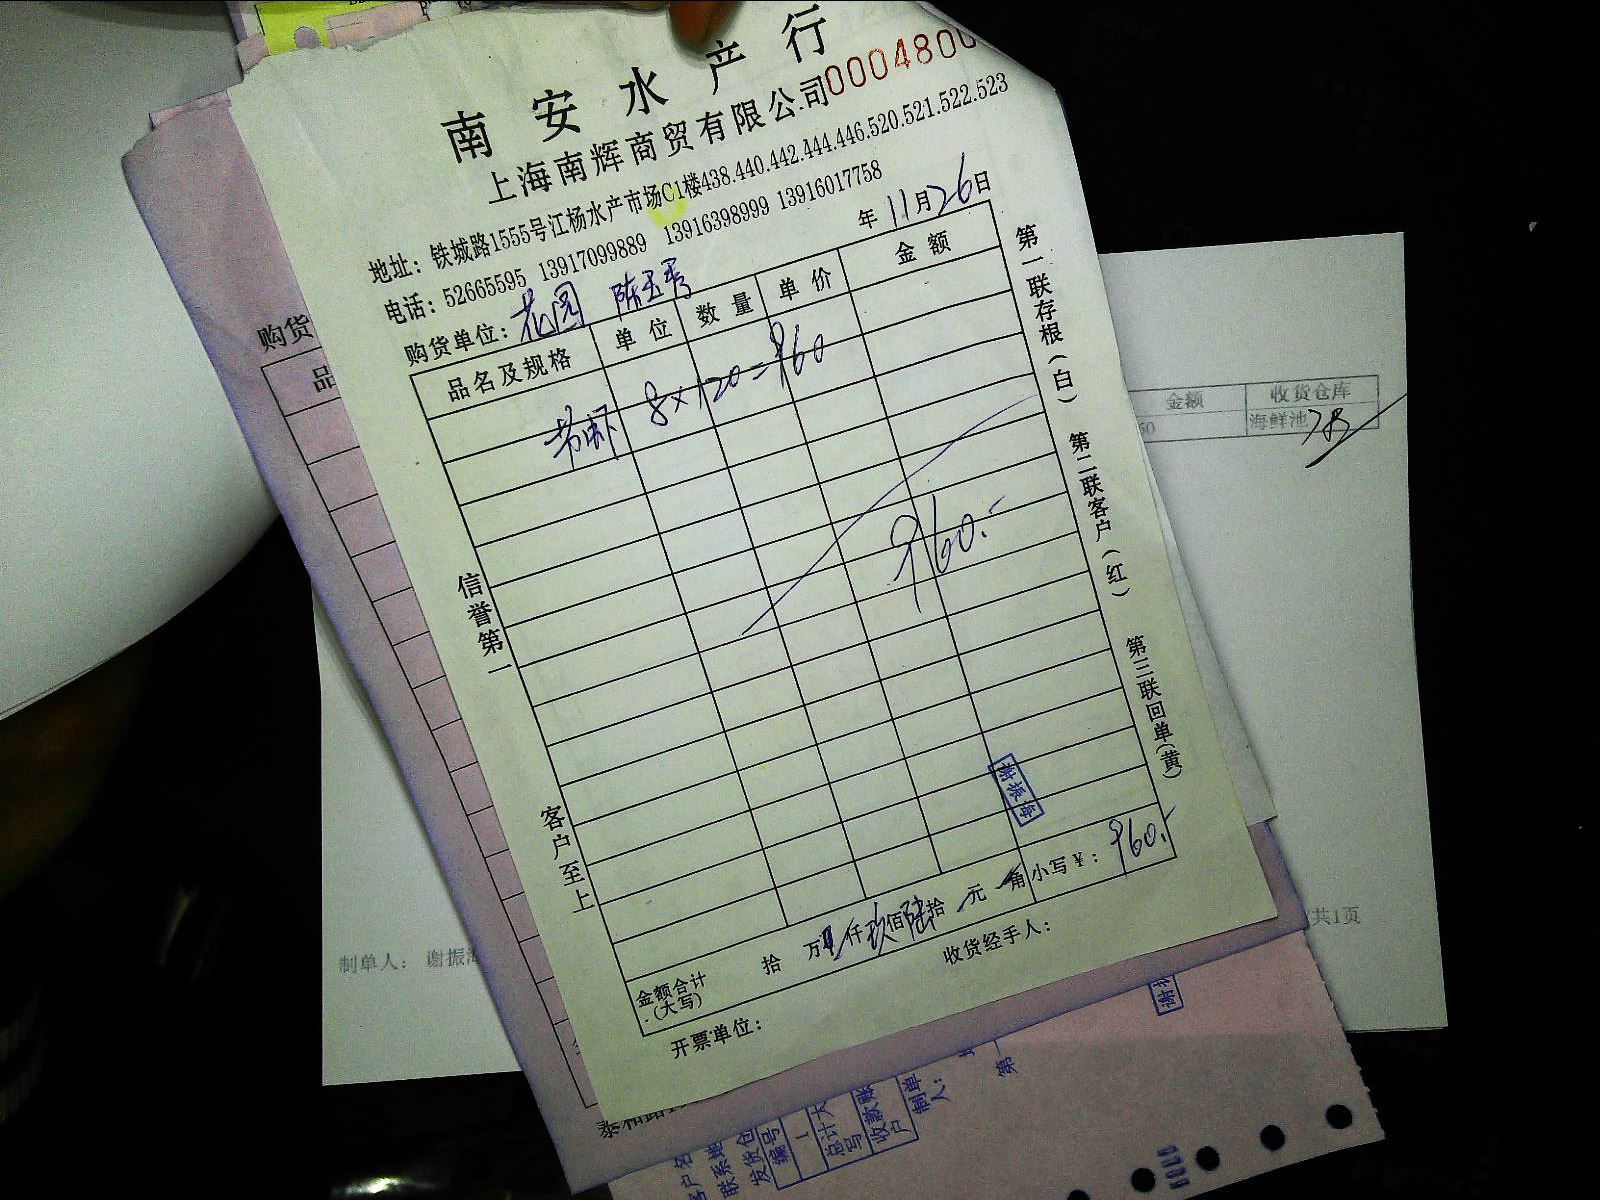 南安水产行
上海南辉商贸有限公司 000480
地址：铁城路1555号江杨水产市场C1楼438.440.442.444.446.520.521.522.523
电话：52665595 13917099889 13916398999 13916017758
年11月26日
购货单位：花园
品名及规格 单位 数量 单价 金额
8×120=960
960.-
信誉第一
客户至上
第一联存根（白）
第二联客户（红）
第三联回单（黄）
谢振海
金额合计（大写） 拾 万 仟玖佰陆拾 元 角 小写￥：960.-
开票单位：
收货经手人：
购货
品
金额 收货仓库
海鲜池
制单人： 谢振
共1页
第一
制单人：
收款账户
总计大写
1
编号
发货仓
联系地